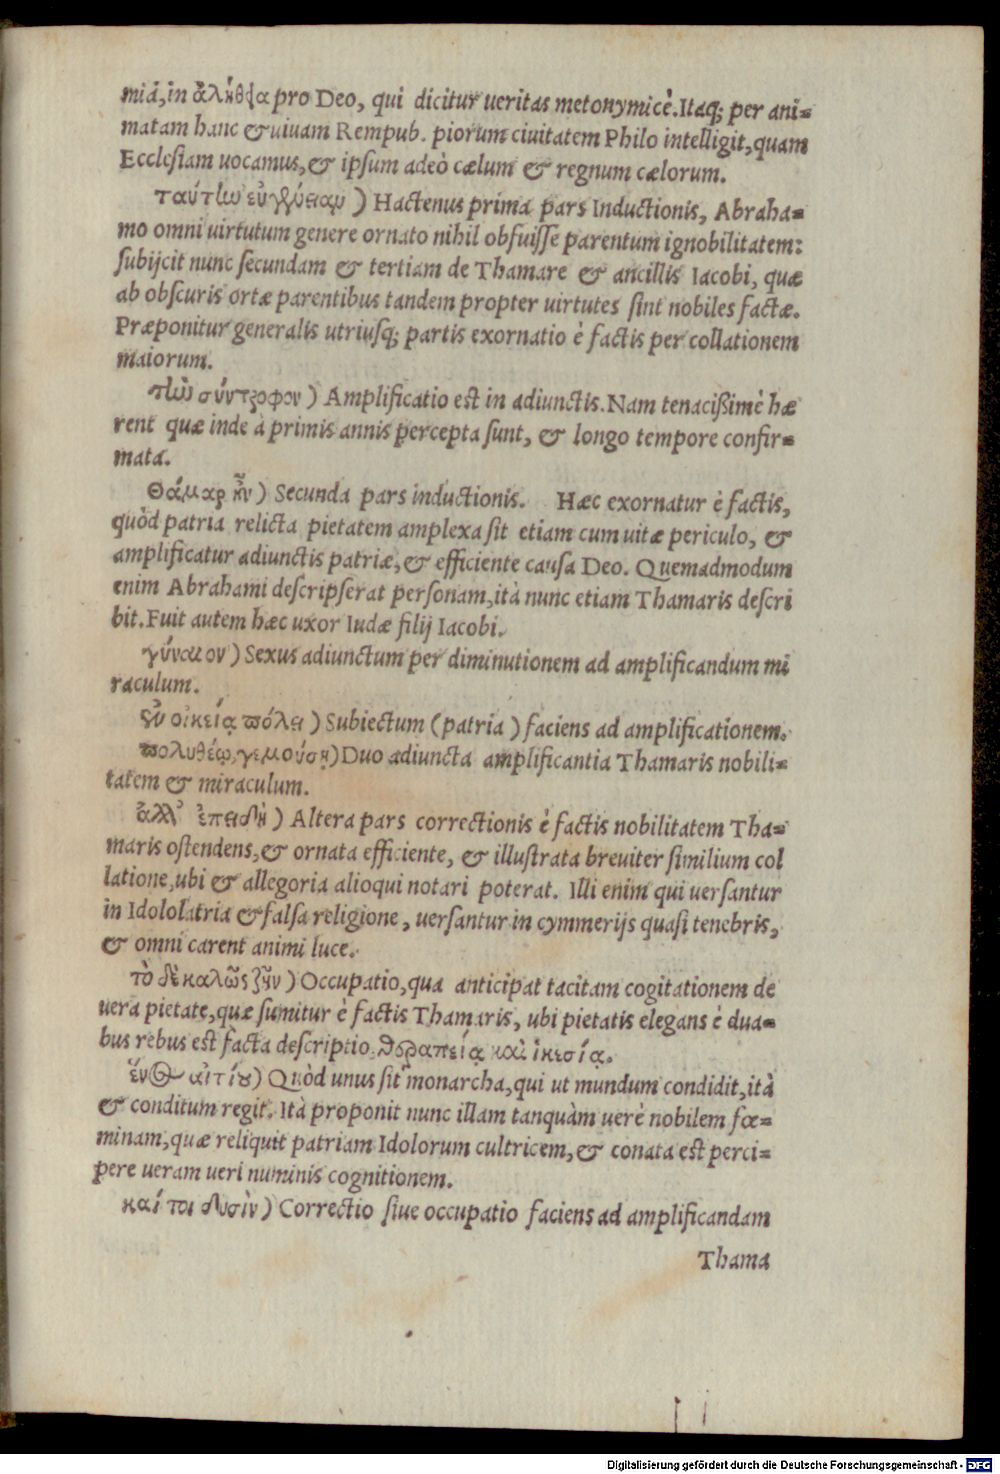 miā, in ἀλήθεια pro Deo, qui dicitur ueritas metonymicè. Itaq; per ani=
matam hanc & uiuam Rempub. piorum ciuitatem Philo intelligit, quam
Ecclesiam uocamus, & ipsum adeò cælum & regnum cælorum.
ταύτἰω εὐγένειαν ) Hactenus prima pars Inductionis, Abraha=
mo omni uirtutum genere ornato nihil obfuisse parentum ignobilitatem:
subijcit nunc secundam & tertiam de Thamare & ancillis Iacobi, quæ
ab obscuris ortæ parentibus tandem propter uirtutes sint nobiles factæ.
Præponitur generalis utriusq; partis exornatio è factis per collationem
maiorum.
τἰω σύντροφον ) Amplificatio est in adiunctis. Nam tenacißimè hæ
rent quæ inde à primis annis percepta sunt, & longo tempore confir=
mata.
Θάμαρ ἦν ) Secunda pars inductionis. Hæc exornatur è factis,
quòd patria relicta pietatem amplexa sit etiam cum uitæ periculo, &
amplificatur adiunctis patriæ, & efficiente causa Deo. Quemadmodum
enim Abrahami descripserat personam, ità nunc etiam Thamaris descri
bit. Fuit autem hæc uxor Iudæ filij Iacobi.
γύναιον ) Sexus adiunctum per diminutionem ad amplificandum mi
raculum.
ἐν οἰκείᾳ πόλει ) Subiectum (patria ) faciens ad amplificationem.
πολυθέῳ, γεμούσῃ ) Duo adiuncta amplificantia Thamaris nobili=
tatem & miraculum.
ἀλλ' ἐπειδὴ ) Altera pars correctionis è factis nobilitatem Tha=
maris ostendens, & ornata efficiente, & illustrata breuiter similium col
latione, ubi & allegoria alioqui notari poterat. Illi enim qui uersantur
in Idololatria & falsa religione, uersantur in cymmerijs quasi tenebris,
& omni carent animi luce.
τὸ δὲ καλῶς ζῆν ) Occupatio, qua anticipat tacitam cogitationem de
uera pietate, quæ sumitur è factis Thamaris, ubi pietatis elegans è dua=
bus rebus est facta descriptio. θεραπείᾳ καὶ ἱκεσίᾳ.
ἑνὸς αἰτίου ) Quòd unus sit monarcha, qui ut mundum condidit, ità
& conditum regit. Ità proponit nunc illam tanquàm uerè nobilem fœ=
minam, quæ reliquit patriam Idolorum cultricem, & conata est perci=
pere ueram ueri numinis cognitionem.
καί τοι δυσὶν ) Correctio siue occupatio faciens ad amplificandam
Thama
Digitalisierung gefördert durch die Deutsche Forschungsgemeinschaft - DFG